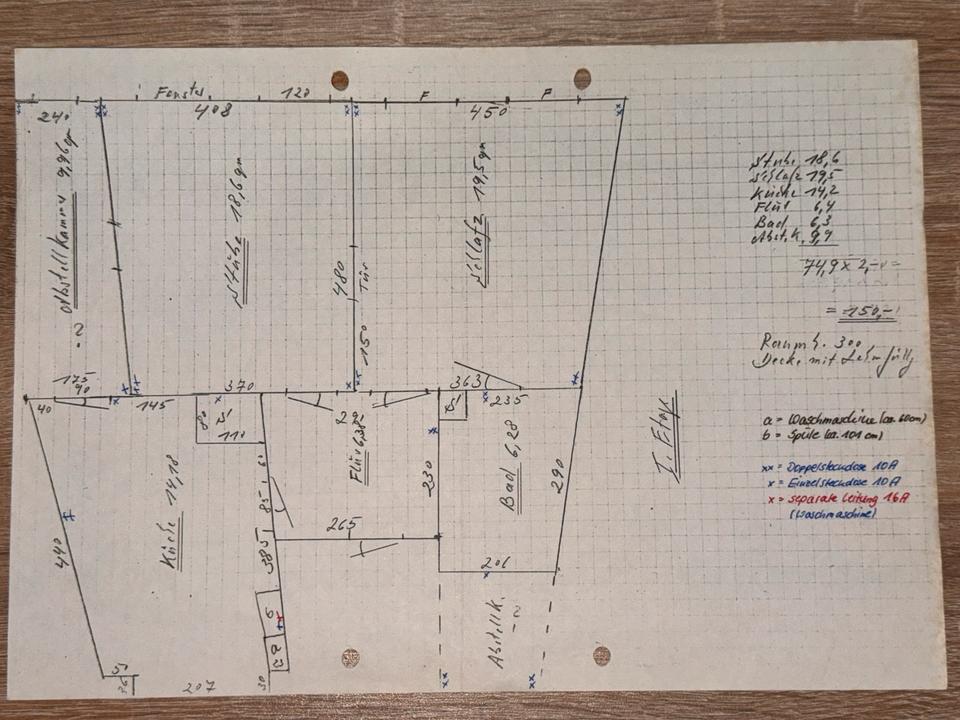 Fenster 120 F F
240 408 450
Abstellkamm 9,96 qm
Stube 18,6 qm
Schlafz 19,5 qm
480 Tür
150
?
Stube 18,6
Schlafz 19,5
Küche 14,2
Flur 6,4
Bad 6,3
Abst.K. 9,9
74,9 x 2,-
= 150,-
Raumh. 300
Decke mit Lehmfüllg
175
90
40 145 370 363 235
80
110
Flur 6,38
230
Bad 6,28
290
I. Etage
a = Waschmaschine (ca. 60cm)
b = Spüle (ca. 101 cm)
xx = Doppelsteckdose 10A
x = Einzelsteckdose 10A
x = separate Leitung 16A
(Waschmaschine)
440
Küche 14,18
85
385
265
201
Abstellk.
?
207
30